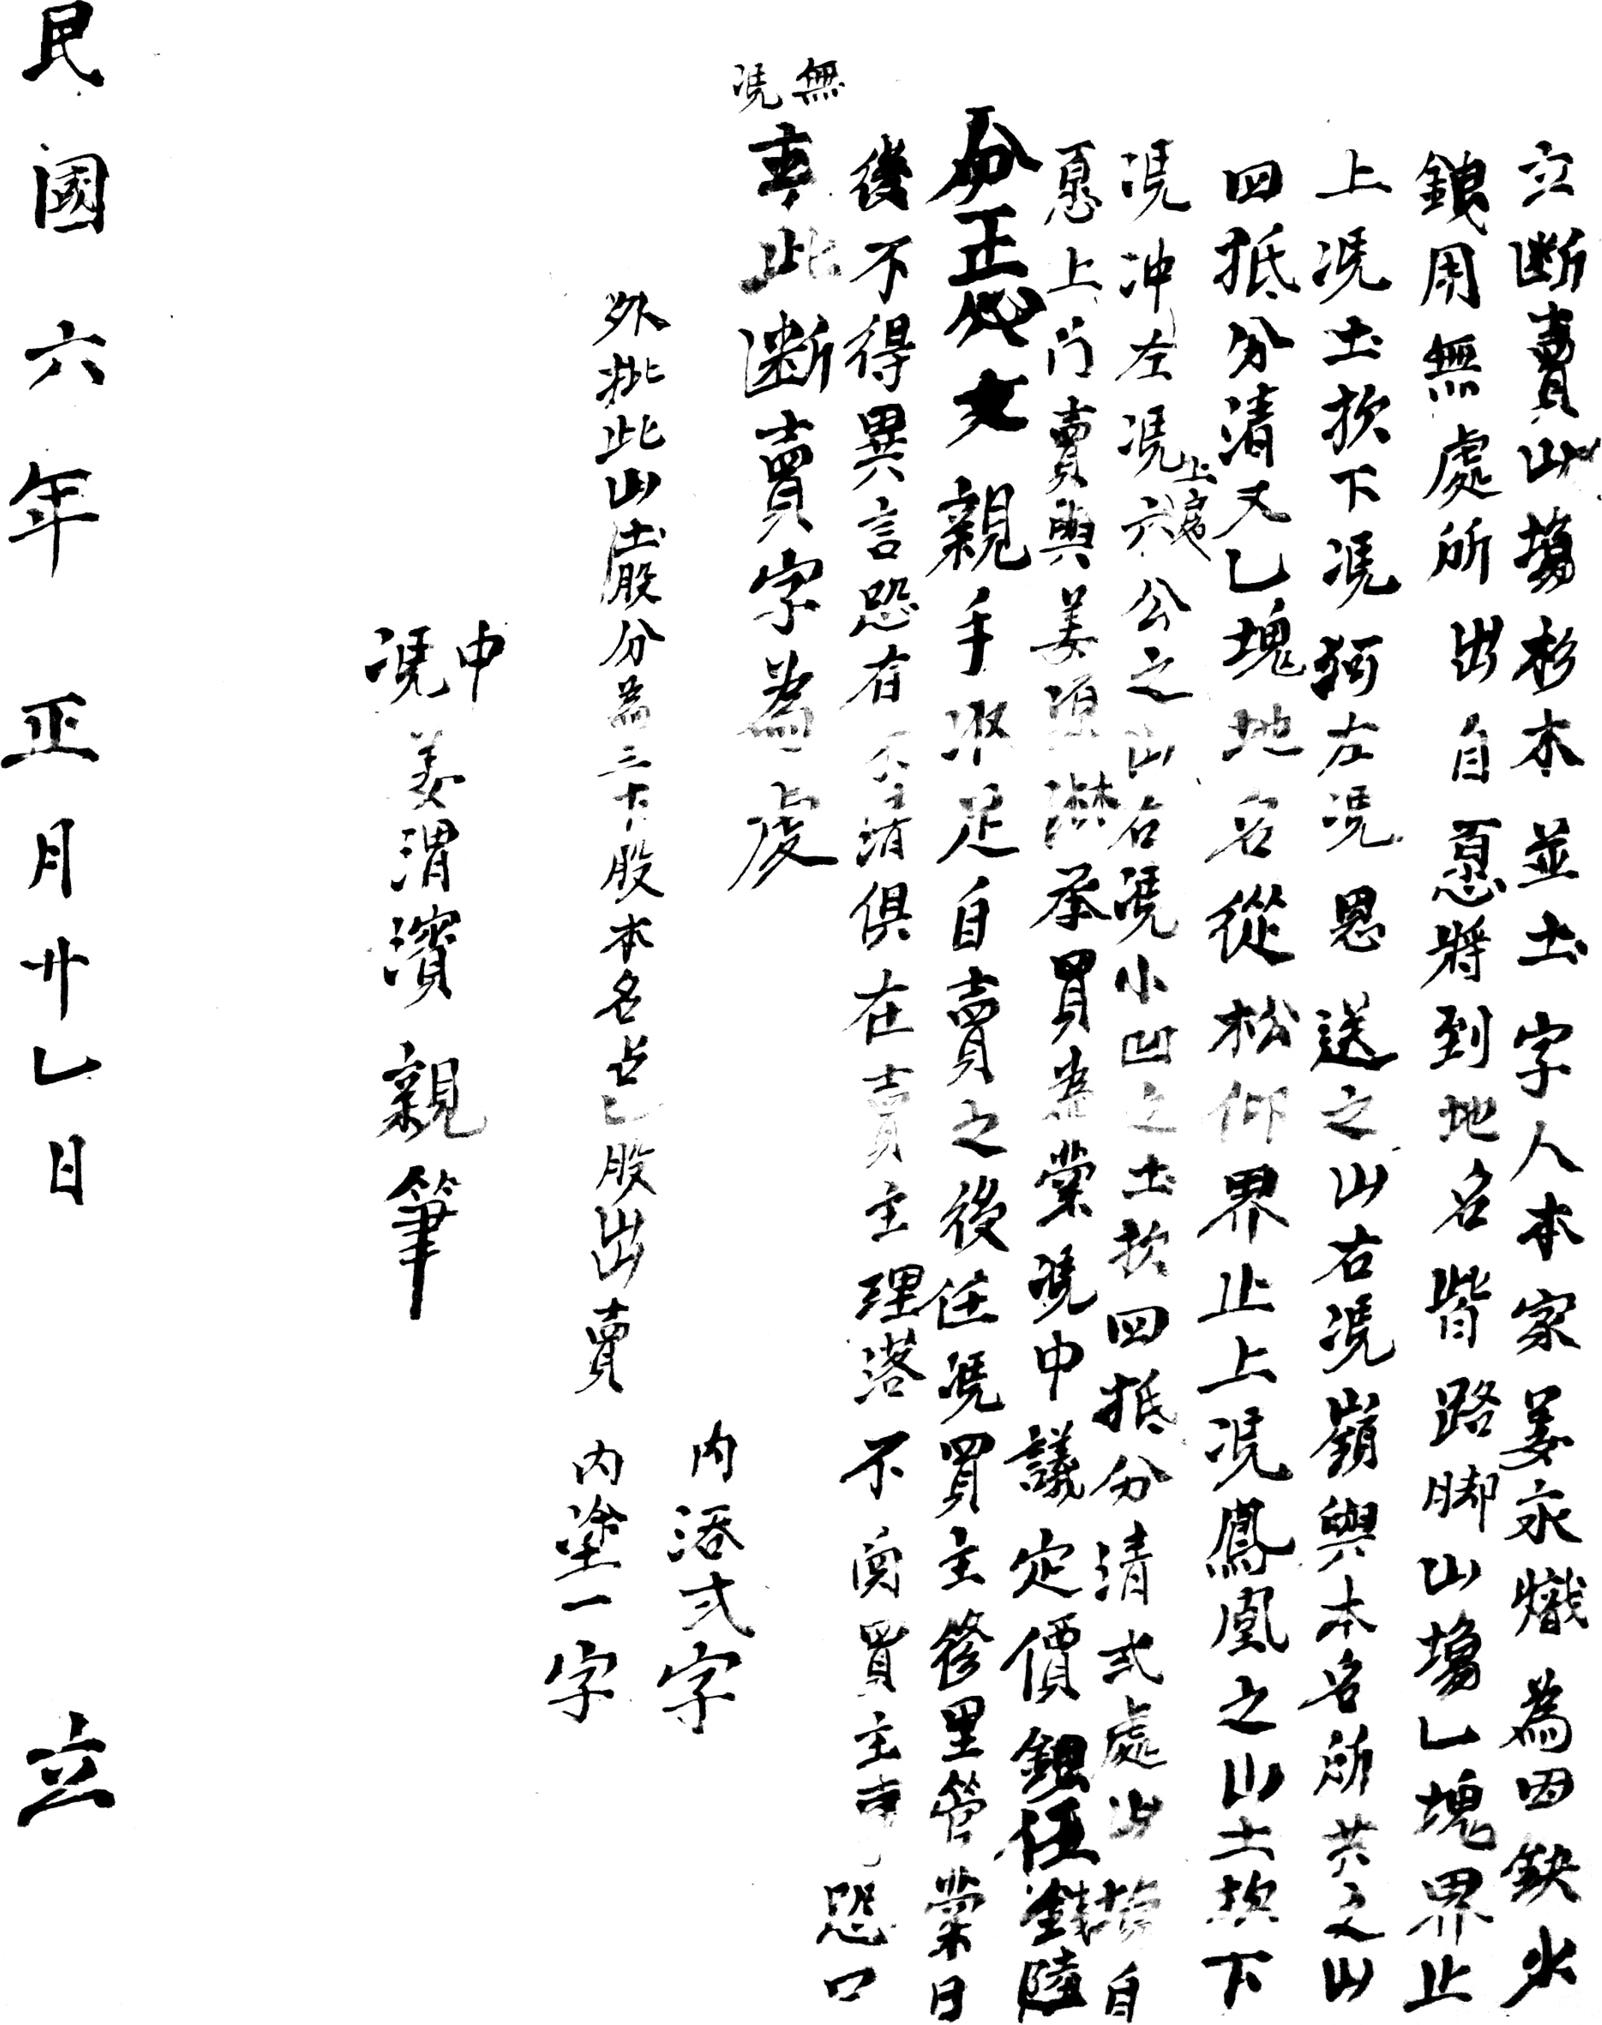 立斷賣山塲杉木並土字人本家姜永熾為因缺少
銀用無處所出自愿將到地名皆路脚山塲乙塊界止
上凴土坎下凴河左凴恩送之山右凴嶺與本名所共之山
四抵分清又乙塊地名從松仰界止上凴鳳凰之山土坎下
凴冲左凴上房六公之山右凴小凹之土坎四抵分清弍處山塲自
愿上門賣與姜源淋承買為業凴中議定價銀伍錢陸
分正 親手収足自賣之後任凴買主修理管業日
後不得異言恐有不清俱在賣主理落不関買主事恐口
無凴立此斷賣字為處
外批此山土股分為三十股本名占乙股出賣
内添弍字
内塗一字
凴中姜渭濱親筆
民國六年正月廿乙日 立